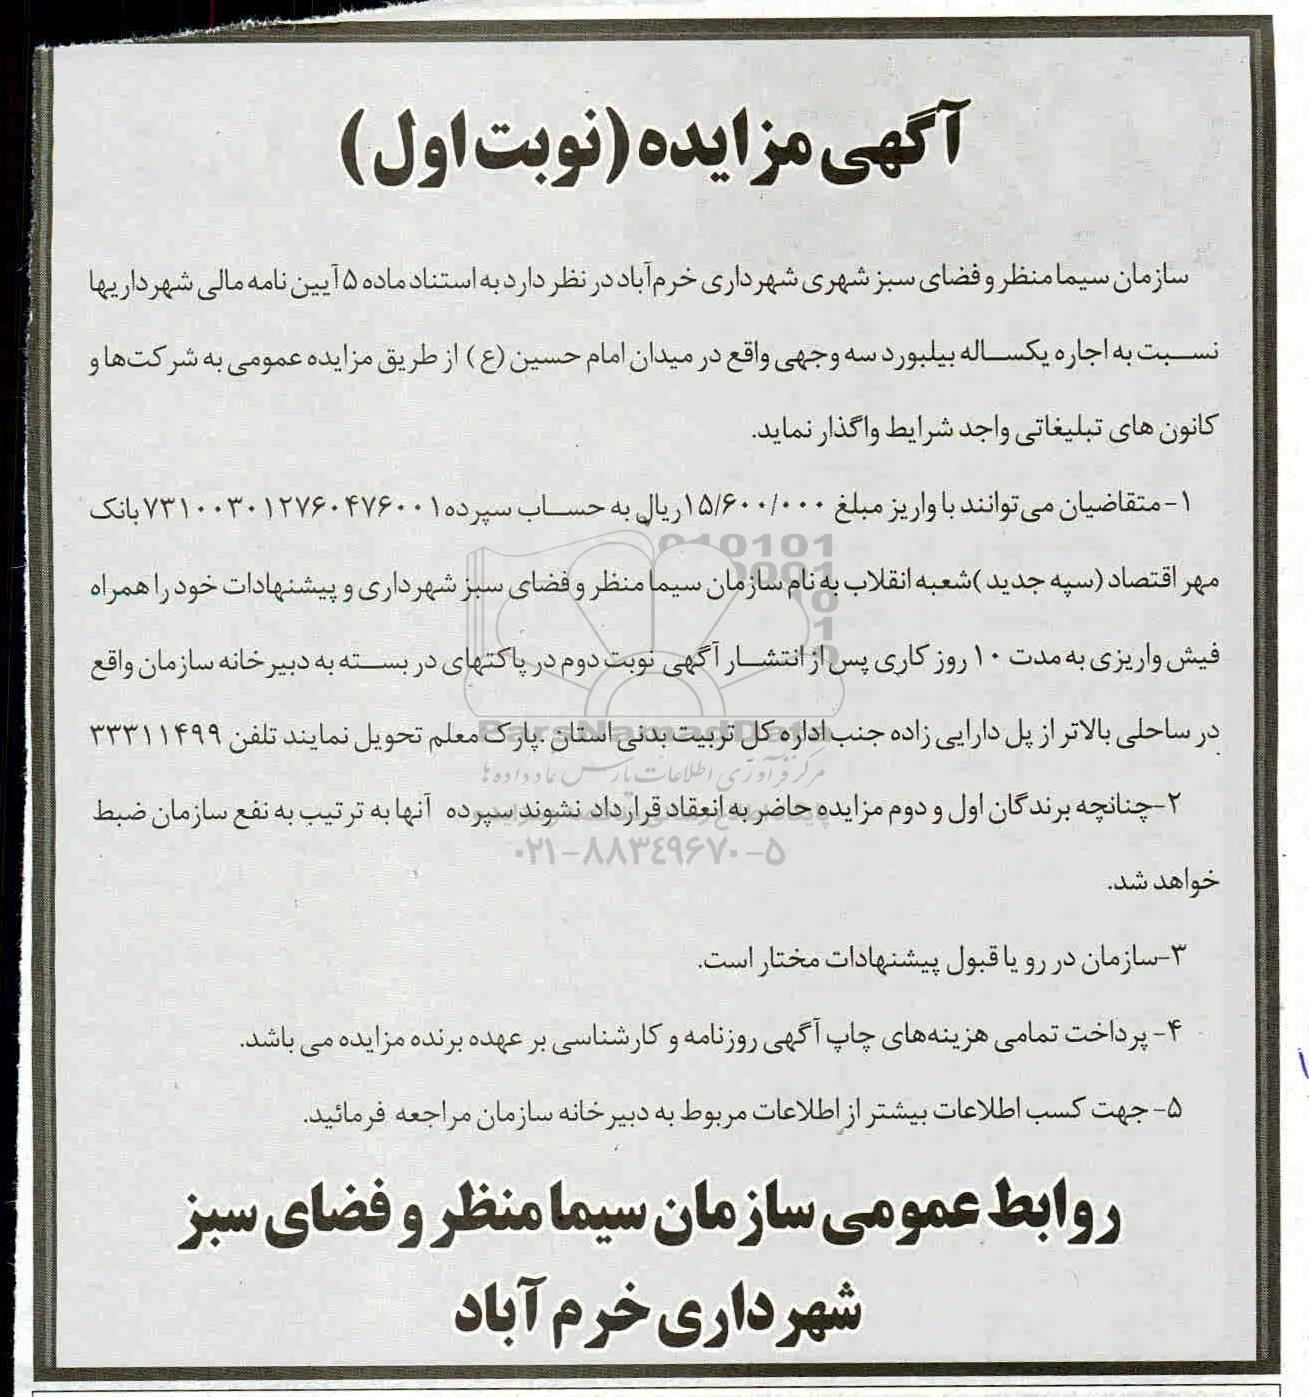 آگهی مزایده (نوبت اول)
سازمان سیما منظر و فضای سبز شهری شهرداری خرم‌آباد در نظر دارد به استناد ماده ۵ آیین نامه مالی شهرداریها
نسبت به اجاره یکساله بیلبورد سه وجهی واقع در میدان امام حسین (ع) از طریق مزایده عمومی به شرکت‌ها و
کانون های تبلیغاتی واجد شرایط واگذار نماید.
۱- متقاضیان می‌توانند با واریز مبلغ ۱۵/۶۰۰/۰۰۰ ریال به حساب سپرده ۷۳۱۰۰۳۰۱۲۷۶۰۴۷۶۰۰۱ بانک
مهر اقتصاد (سپه جدید) شعبه انقلاب به نام سازمان سیما منظر و فضای سبز شهرداری و پیشنهادات خود را همراه
فیش واریزی به مدت ۱۰ روز کاری پس از انتشار آگهی نوبت دوم در پاکتهای در بسته به دبیرخانه سازمان واقع
در ساحلی بالاتر از پل دارایی زاده جنب اداره کل تربیت بدنی استان .پارک معلم تحویل نمایند تلفن ۳۳۳۱۱۴۹۹
ParsNamadData
مرکز فرآوری اطلاعات پارس نماد داده ها
۲-چنانچه برندگان اول و دوم مزایده حاضر به انعقاد قرارداد نشوند سپرده آنها به ترتیب به نفع سازمان ضبط
۰۲۱-۸۸۳۴۹۶۷۰-۵
خواهد شد.
۳-سازمان در رو یا قبول پیشنهادات مختار است.
۴- پرداخت تمامی هزینه‌های چاپ آگهی روزنامه و کارشناسی بر عهده برنده مزایده می باشد.
۵- جهت کسب اطلاعات بیشتر از اطلاعات مربوط به دبیرخانه سازمان مراجعه فرمائید.
روابط عمومی سازمان سیما منظر و فضای سبز
شهرداری خرم آباد